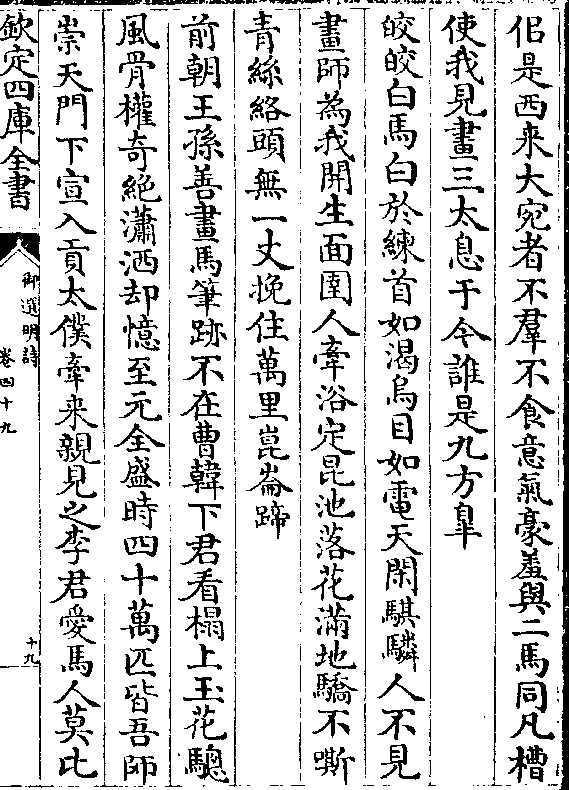 侶是西来大宛者不羣不食意氣豪羞與二馬同凡槽
使我見畫三太息于今誰是九方臯
皎皎白馬白於練首如渴烏目如電天閑騏驎人不見
畫師為我開生面圉人牽浴定昆池落花滿地驕不嘶
青絲絡頭無一丈挽住萬里崑崙蹄
前朝王孫善畫馬筆跡不在曹韓下君看榻上玉花驄
風骨權奇絶瀟洒却憶至元全盛時四十萬匹皆吾師
崇天門下宣入貢太僕牽来親見之李君愛馬人莫比
欽定四庫全書
御選明詩
卷四十九
十九